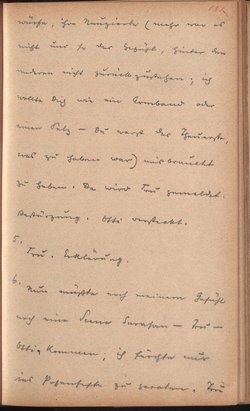 würfe, ihre Neugierde (mehr war es
nicht nur so das Gefühl, hinter den
anderen nicht zurückzustehen; ich
wollte Dich wie ein Armband oder
einen Pelz – Du warst das Theuerste,
was zu haben war) missbraucht
zu haben. Da wird Tru gemeldet.
Bestürzung. Otti versteckt.
5.
Tru. Erklärung.
6.
Nun müsste nach meinem Gefühl
noch eine Scene Sarafan – Tru –
Otti kommen; ich fürchte nur
ins Possenhafte zu geraten. Tru